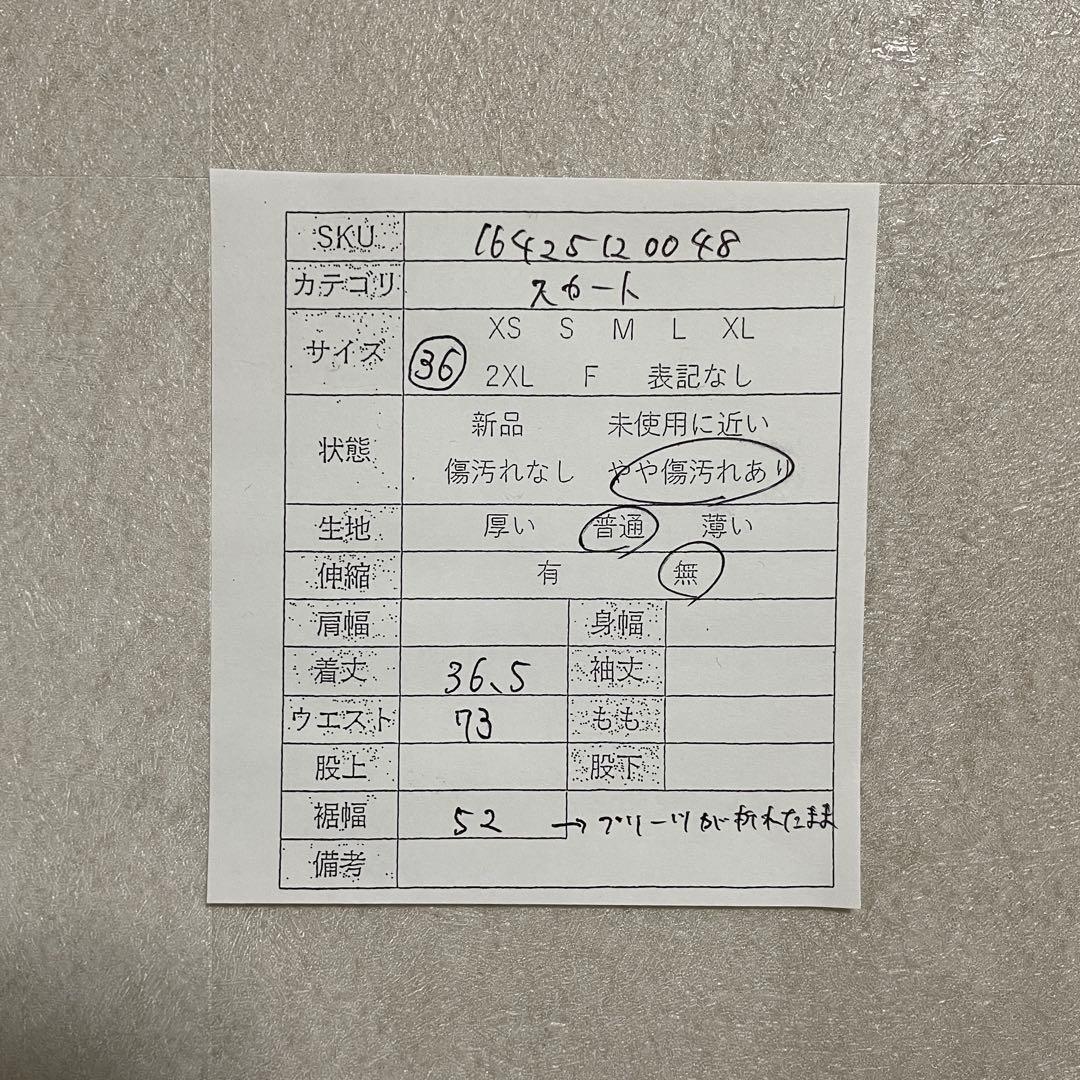 SKU 164251120048
カテゴリ スカート
サイズ XS S M L XL
36 2XL F 表記なし
状態 新品 未使用に近い
傷汚れなし やや傷汚れあり
生地 厚い 普通 薄い
伸縮 有 無
肩幅 身幅
着丈 36.5 袖丈
ウエスト 73 もも
股上 股下
裾幅 52 → プリーツが折れたまま
備考